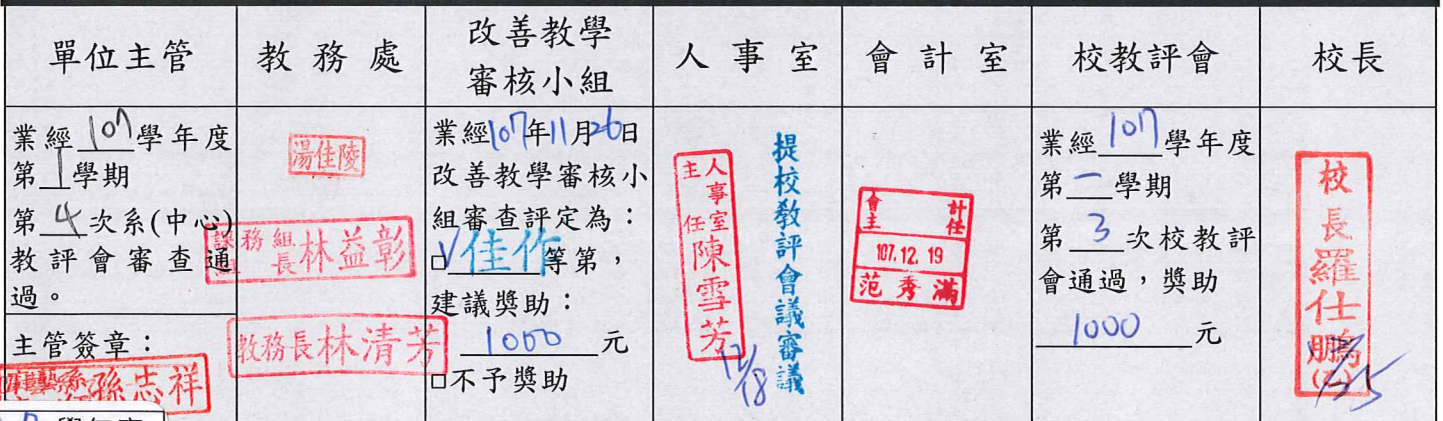 單位主管
教務處
改善教學
審核小組
人事室
會計室
校教評會
校長
業經107學年度
第1學期
第4次系(中心)
教評會審查通
過。
主管簽章：
孫志祥
湯佳陵
課務組
組長
林益彰
教務長林清芳
業經107年11月26日
改善教學審核小
組審查評定為：
□V佳作等第，
建議獎助：
1000元
□不予獎助
人事室
主任
陳雪芳
12/18
提校教評會議審議
會計
主任
107.12.19
范秀滿
業經107學年度
第一學期
第3次校教評
會通過，獎助
1000元
校長羅仕鵬
學年度